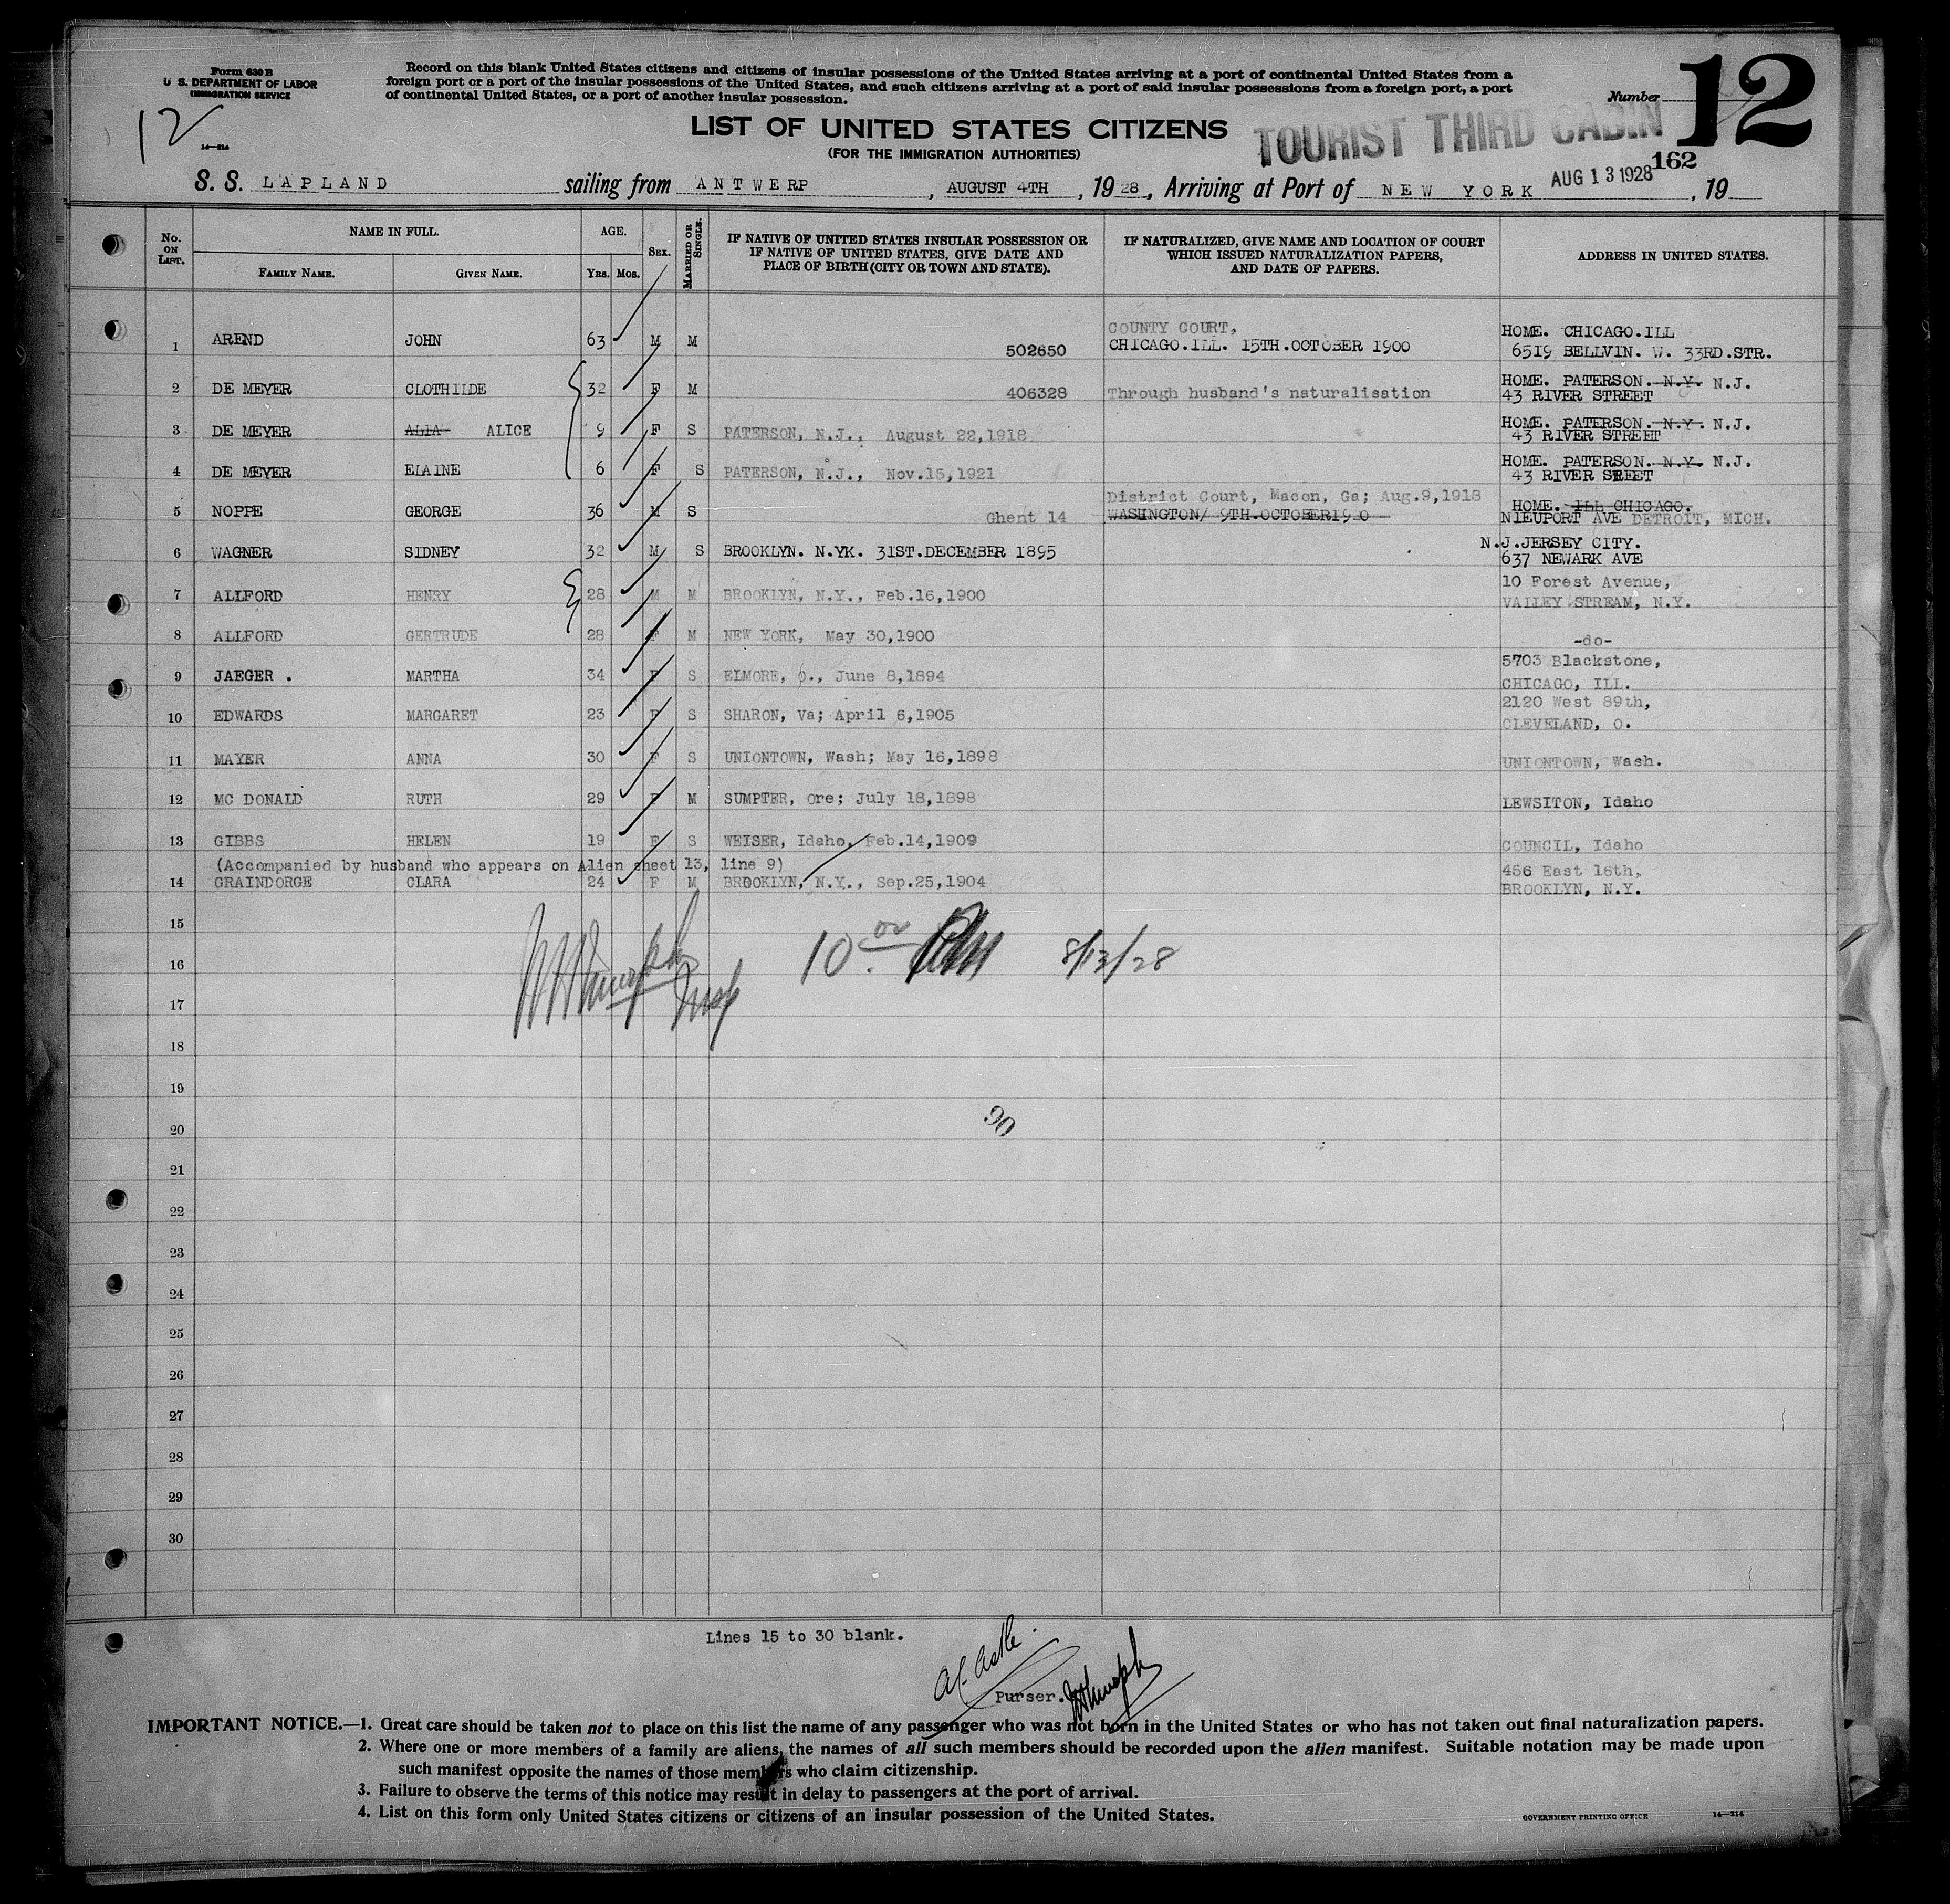 Form 630 B
U. S. DEPARTMENT OF LABOR
IMMIGRATION SERVICE
12
14—214
Record on this blank United States citizens and citizens of insular possessions of the United States arriving at a port of continental United States from a
foreign port or a port of the insular possessions of the United States, and such citizens arriving at a port of said insular possessions from a foreign port, a port
of continental United States, or a port of another insular possession.
Number 12
LIST OF UNITED STATES CITIZENS
TOURIST THIRD CABIN
(FOR THE IMMIGRATION AUTHORITIES)
162
S. S. LAPLAND sailing from ANTWERP, AUGUST 4TH, 1928, Arriving at Port of NEW YORK AUG 13 1928, 19
No. ON LIST. NAME IN FULL. FAMILY NAME. GIVEN NAME. AGE. YRS. MOS. SEX. MARRIED OR SINGLE. IF NATIVE OF UNITED STATES INSULAR POSSESSION OR IF NATIVE OF UNITED STATES, GIVE DATE AND PLACE OF BIRTH (CITY OR TOWN AND STATE). IF NATURALIZED, GIVE NAME AND LOCATION OF COURT WHICH ISSUED NATURALIZATION PAPERS, AND DATE OF PAPERS. ADDRESS IN UNITED STATES.
1 AREND JOHN 63 M M 502650 COUNTY COURT, CHICAGO.ILL. 15TH.OCTOBER 1900 HOME. CHICAGO.ILL 6519 BELLVIN. W. 33RD.STR.
2 DE MEYER CLOTHILDE 32 F M 406328 Through husband's naturalisation HOME. PATERSON. N.Y. N.J. 43 RIVER STREET
3 DE MEYER ALIA ALICE 9 F S PATERSON, N.J., August 22,1918 HOME. PATERSON. N.Y. N.J. 43 RIVER STREET
4 DE MEYER ELAINE 6 F S PATERSON, N.J., Nov.15,1921 HOME. PATERSON. N.Y. N.J. 43 RIVER SREET
5 NOPPE GEORGE 36 M S Ghent 14 District Court, Macon, Ga; Aug.9,1918 WASHINGTON/ 9TH.OCTOBER19 0 HOME. ILL CHICAGO. NIEUPORT AVE DETROIT, MICH.
6 WAGNER SIDNEY 32 M S BROOKLYN. N.YK. 31ST.DECEMBER 1895 N.J.JERSEY CITY. 637 NEWARK AVE
7 ALLFORD HENRY 28 M M BROOKLYN, N.Y., Feb.16,1900 10 Forest Avenue, VALLEY STREAM, N.Y.
8 ALLFORD GERTRUDE 28 F M NEW YORK, May 30,1900 -do-
9 JAEGER . MARTHA 34 F S ELMORE, O., June 8,1894 5703 Blackstone, CHICAGO, ILL.
10 EDWARDS MARGARET 23 F S SHARON, Va; April 6,1905 2120 West 89th, CLEVELAND, O.
11 MAYER ANNA 30 F S UNIONTOWN, Wash; May 16,1898 UNIONTOWN, Wash.
12 MC DONALD RUTH 29 F M SUMPTER, Ore; July 18,1898 LEWSITON, Idaho
13 GIBBS HELEN 19 F S WEISER, Idaho, Feb.14,1909 COUNCIL, Idaho
(Accompanied by husband who appears on Alien sheet 13, line 9)
14 GRAINDORGE CLARA 24 F M BROOKLYN, N.Y., Sep.25,1904 456 East 16th, BROOKLYN, N.Y.
15
16 10 8/13/28
17
18
19
90
20
21
22
23
24
25
26
27
28
29
30
Lines 15 to 30 blank.
Purser.
IMPORTANT NOTICE.—1. Great care should be taken not to place on this list the name of any passenger who was not born in the United States or who has not taken out final naturalization papers.
2. Where one or more members of a family are aliens, the names of all such members should be recorded upon the alien manifest. Suitable notation may be made upon
such manifest opposite the names of those members who claim citizenship.
3. Failure to observe the terms of this notice may result in delay to passengers at the port of arrival.
4. List on this form only United States citizens or citizens of an insular possession of the United States.
GOVERNMENT PRINTING OFFICE 14—214